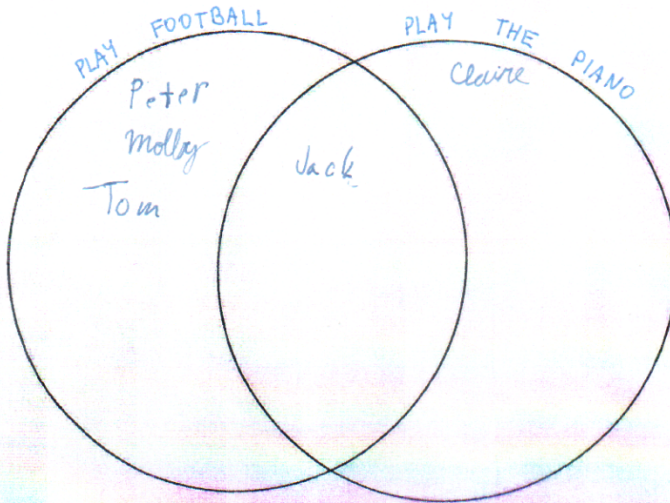 PLAY FOOTBALL
PLAY THE PIANO
Peter
Molly
Tom
Jack
Claire